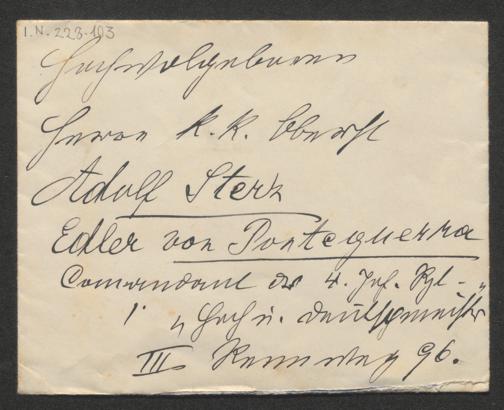 I.N. 223.193
Hochwolgeboren
Herrn k. k. Oberst
Adolf Sterz
Edler von Ponteguerra
Comandant des 4. Inf. Rgt. - "
! " Hoch u. Deutschmeister
III Rennweg 96.